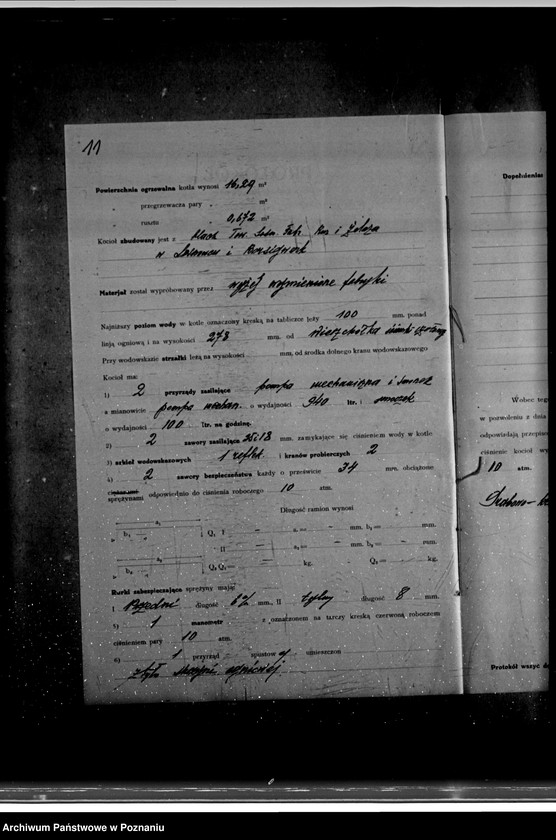 11
Powierzchnia ogrzewalna kotła wynosi 16,29 m²
„ przegrzewacza pary „ m²
„ rusztu „ 0,672 m²
Kocioł zbudowany jest z blach Tow. i żelaza
w i
Materjał został wypróbowany przez wyżej wymienione fabryki
Najniższy poziom wody w kotle oznaczony kreską na tabliczce leży 100 mm. ponad
linją ogniową i na wysokości 278 mm. od wierzchołka
Przy wodowskazie strzałki leżą na wysokości mm. od środka dolnego kranu wodowskazowego
Kocioł ma:
1) 2 przyrządy zasilające pompa mechaniczna i smok
a mianowicie pompa mechan. o wydajności 940 ltr. i smoczek
o wydajności 100 ltr. na godzinę.
2) 2 zawory zasilające 35 i 18 mm. zamykające się ciśnieniem wody w kotle
3) szkieł wodowskazowych 1 reflek. i kranów probierczych 2
4) 2 zawory bezpieczeństwa każdy o prześwicie 34 mm. obciążone
sprężynami odpowiednio do ciśnienia roboczego 10 atm.
Długość ramion wynosi
a₁ b₁ Q₁ I — a₁ = — mm. b₁ = — mm.
II — a₂ = — mm. b₂ = — mm.
a₂ b₂ Q₂ Q₁ = — kg. Q₂ = — kg.
Rurki zabezpieczające sprężyny mają:
I przedni długość 6½ mm., II tylny długość 8 mm.
5) 1 manometr z oznaczonem na tarczy kreską czerwoną roboczem
ciśnieniem pary 10 atm.
6) 1 przyrząd spustowy umieszczon
z tyłu skrzyni ogniowej
Dopełnienia:
Wobec teg
w pozwoleniu z dnia
odpowiadają przepisom
ciśnienie kocioł wy
10 atm.
Protokół wszyc do
Archiwum Państwowe w Poznaniu